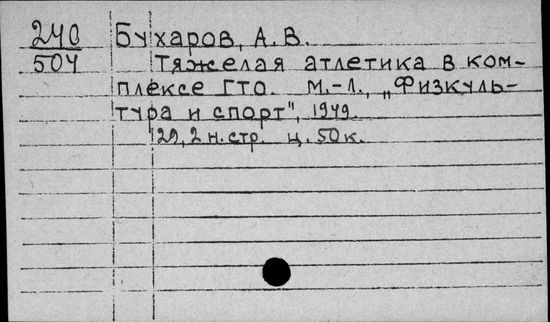 240 Бухаров, А. В.
504 Тяжелая атлетика в ком-
плексе ГТО. М.-Л., „Физкуль-
тура и спорт", 1949.
29, 2 н. стр. ц. 50 к.